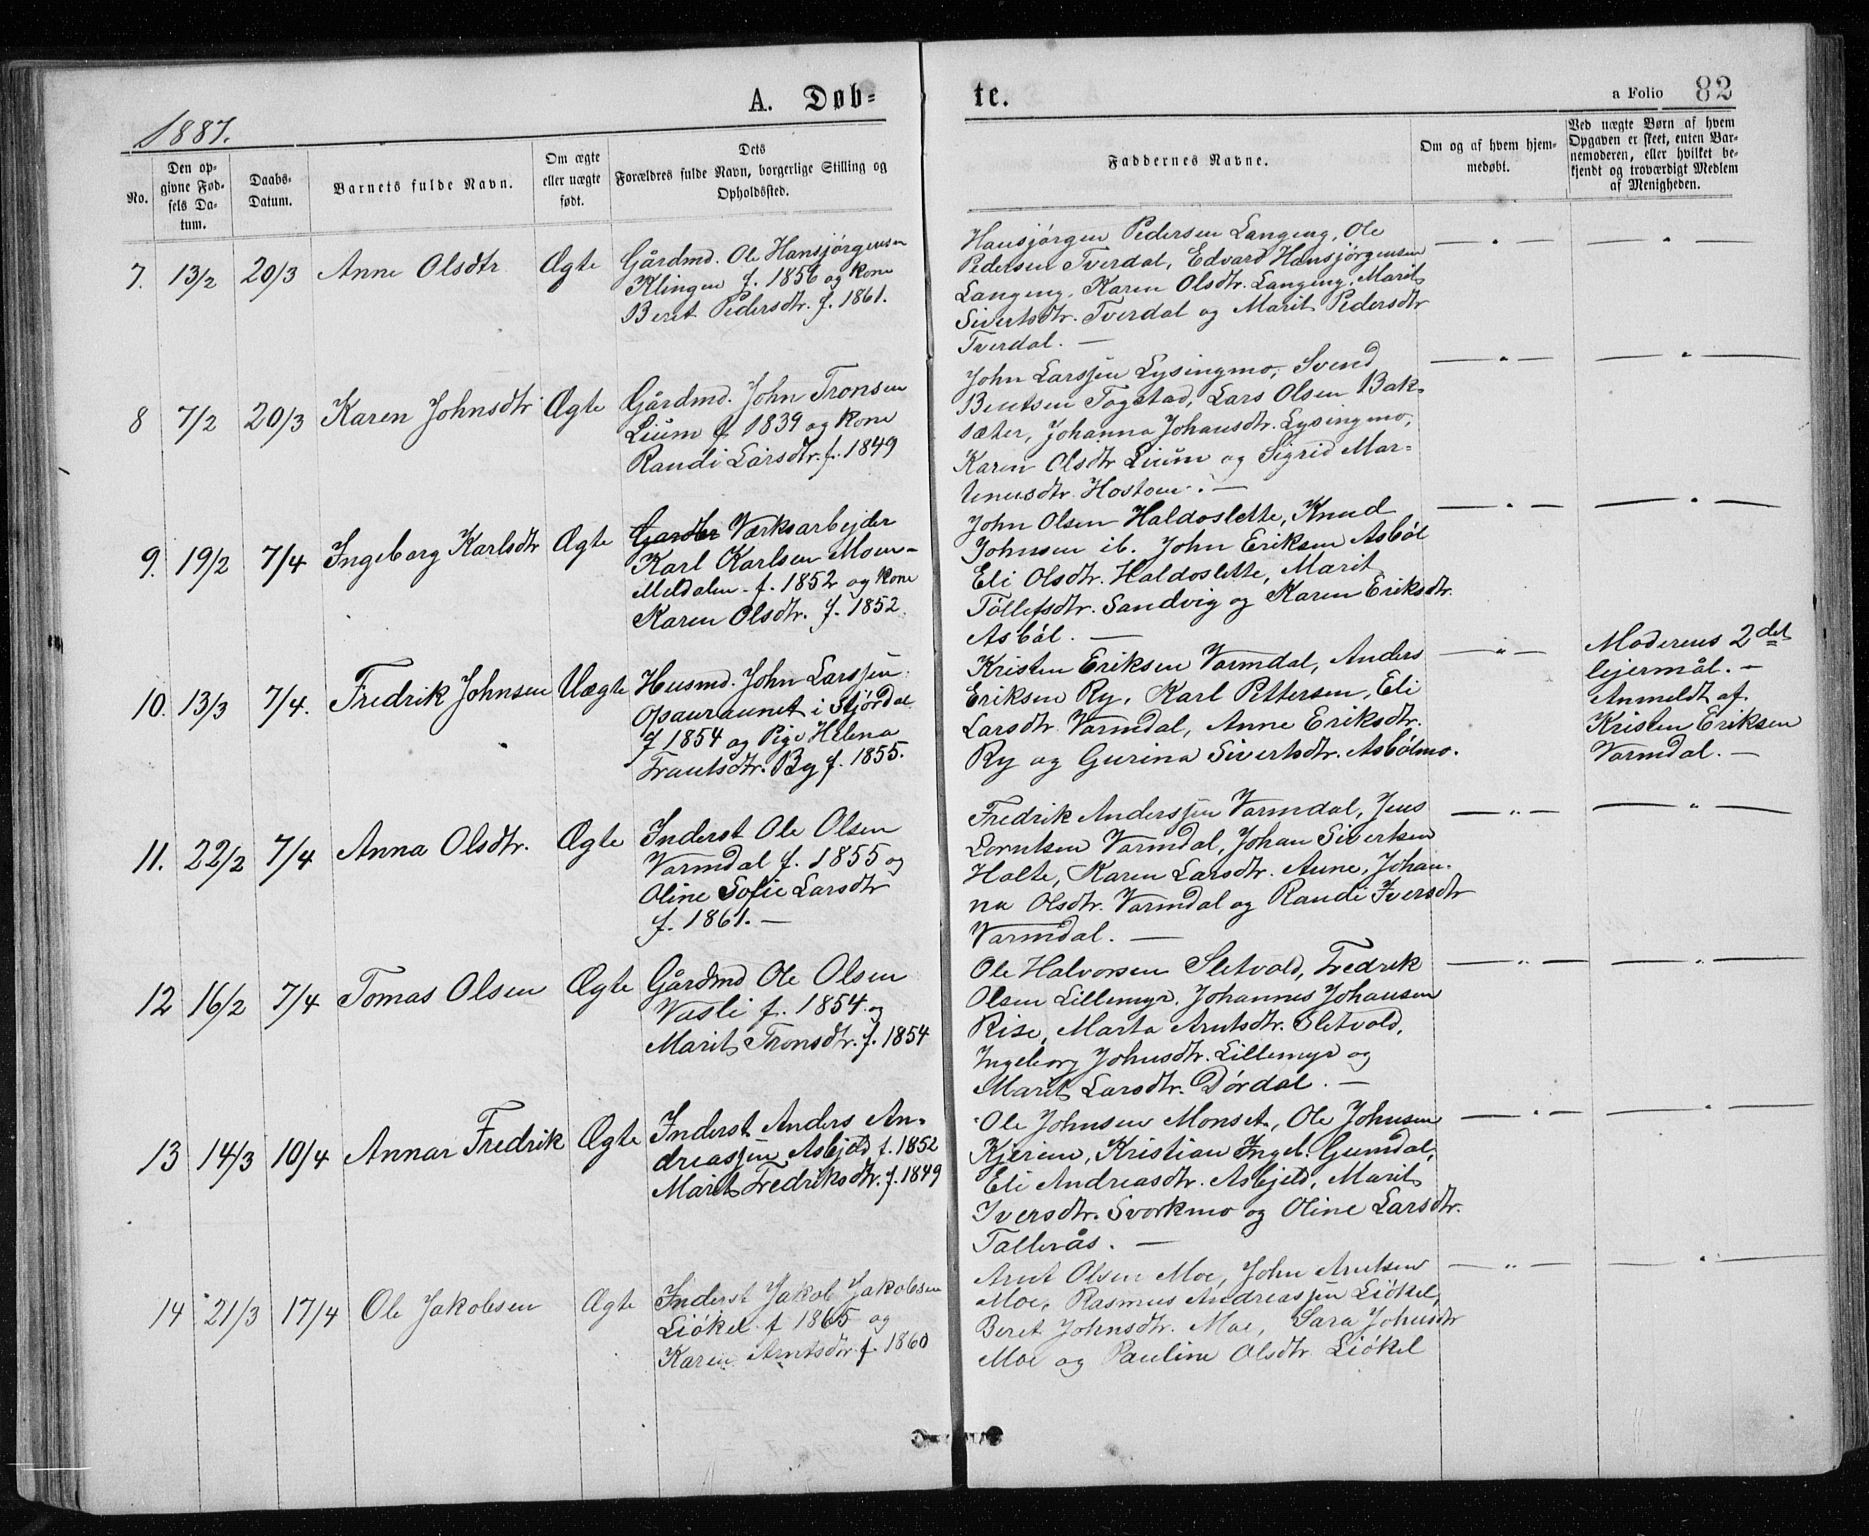 A. Døb-
te.
a Folio 82
1887.
No.
Den op-
givne Fød-
sels Da-
tum.
Daabs-
Datum.
Barnets fulde Navn.
Om ægte
eller uægte
født.
Dets
Forældres fulde Navn, borgerlige Stilling og
Opholdssted.
Faddernes Navne.
Om og af hvem hjem-
medøbt.
Ved uægte Børn af hvem
Opgaven er skeet, enten Bar-
nemoderen, eller hvilket be-
kjendt og troværdigt Medlem
af Menigheden.
7. 13/2 20/3 Anne Olsdtr Ægte
Gårdmd. Ole Hansjørgensen
Klingen f. 1856 og kone
Beret Pedersdtr. f. 1861.
Hansjørgen Pedersen Langeng, Ole
Pedersen Tverdal, Edvard Hansjørgensen
Langeng, Karen Olsdtr. Langeng, Marit
Sivertsdtr. Tverdal og Marit Pedersdtr
Tverdal. —
— " — — " —
8 7/2 20/3 Karen Johnsdtr Ægte
Gårdmd. John Tronsen
Lium f. 1839 og kone
Randi Larsdtr. f. 1849
John Larssen Lysingmo, Svend
Bentsen Togstad, Lars Olsen Bak-
sæter, Johanna Johansdtr. Lysingmo,
Karen Olsdtr Lium og Sigrid Mar-
tinusdtr. Hostoen. —
— " — — " —
9. 19/2 7/4 Ingeborg Karlsdtr Ægte
Værksarbejder
Karl Karlsen Moen-
Meldalen f. 1852 og kone
Karen Olsdtr. f. 1852.
John Olsen Haldoslette, Knud
Johnsen ib. John Eriksen Asbøl
Eli Olsdtr. Haldoslette, Marit
Tøllefsdtr. Sandvig og Karen Eriksdtr.
Asbøl. —
— " — — " —
10. 13/3 7/4. Fredrik Johnsen Uægte
Husmd. John Larssen
Opauraunet i Stjørdal
f 1854 og Pige Helena
Frantsdtr. By f. 1855.
Kristen Eriksen Varmdal, Anders
Eriksen Ry, Karl Pettersen, Eli
Larsdtr. Varmdal, Anne Eriksdtr.
Ry og Gurina Sivertsdtr. Asbølmo.
— " —
Moderens 2det
lejermål. —
Anmeldt af
Kristen Eriksen
Varmdal. —
11. 22/2 7/4 Anna Olsdtr. Ægte
Inderst Ole Olsen
Varmdal f. 1855 og
Oline Sofie Larsdtr
f. 1861. —
Fredrik Anderssen Varmdal, Jens
Lorntsen Varmdal, Johan Sivertsen
Holte, Karen Larsdtr. Aune, Johan-
na Olsdtr. Varmdal og Randi Iversdtr
Varmdal. —
— " — — " —
12 16/2 7/4 Tomas Olsen Ægte
Gårdmd Ole Olsen
Vasli f. 1854 og
Marit Tronsdtr. f. 1854
Ole Halvorsen Sletvold, Fredrik
Olsen Lillemyr, Johannes Johansen
Rise, Marta Arntsdtr. Sletvold,
Ingeborg Johnsdtr. Lillemyr og
Marit Larsdtr. Dørdal. —
— " — — " —
13 14/3 10/4 Annar Fredrik Ægte
Inderst Anders An-
dreassen Asbjeld f. 1852
Marit Fredriksdtr. f. 1849
Ole Johnsen Monset, Ole Johnsen
Kjerem, Kristian Ingel. Gumdal,
Eli Andreasdtr. Asbjeld, Marit
Iversdtr. Svorkmo og Oline Larsdtr.
Tallerås. —
— " — — " —
14 21/3 17/4 Ole Jakobsen Ægte
Inderst Jakob Jakobsen
Liøkel f 1865 og
Karen Arntsdtr f. 1860
Arnt Olsen Moe, John Arntsen
Moe, Rasmus Andreassen Liøkel,
Beret Johnsdtr. Moe, Sara Johnsdtr
Moe og Pauline Olsdtr. Liøkel
— " — — " —